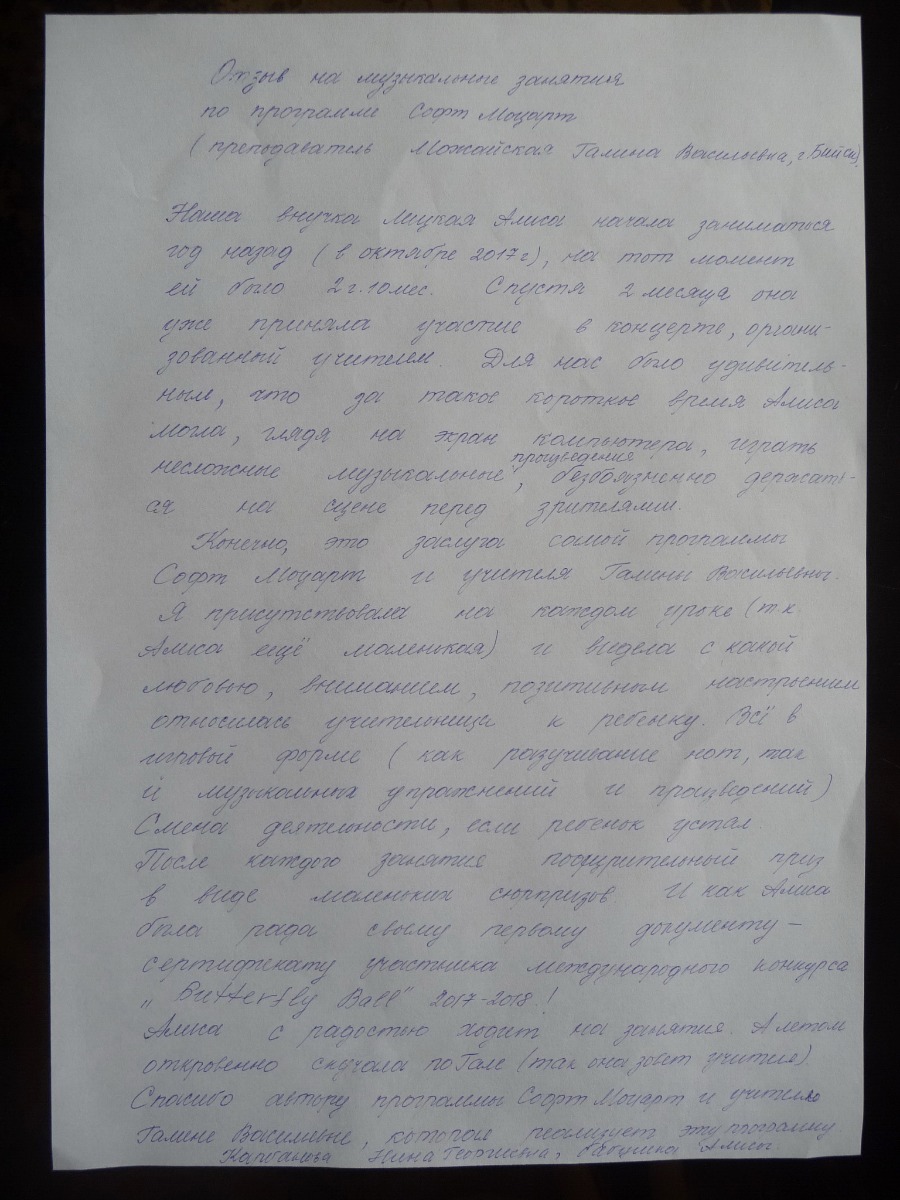 Отзыв на музыкальные занятия
по программе Софт Моцарт
(преподаватель Можайская Галина Васильевна, г. Бийск)
Наша внучка Лицкая Алиса начала заниматься
год назад (в октябре 2017г), на тот момент
ей было 2 г. 10 мес. Спустя 2 месяца она
уже приняла участие в концерте, органи-
зованный учителем. Для нас было удивитель-
ным, что за такое короткое время Алиса
могла, глядя на экран компьютера, играть
произведения
несложные музыкальные, безбоязненно держать-
ся на сцене перед зрителями.
Конечно, это заслуга самой программы
Софт Моцарт и учителя Галины Васильевны.
Я присутствовала на каждом уроке (т.к
Алиса ещё маленькая) и видела с какой
любовью, вниманием, позитивным настроением
относилась учительница к ребенку. Всё в
игровой форме (как разучивание нот, так
и музыкальных упражнений и произведений)
Смена деятельности, если ребенок устал.
После каждого занятия поощрительный приз
в виде маленьких сюрпризов. И как Алиса
была рада своему первому документу –
сертификату участника международного конкурса
„Butterfly Ball" 2017-2018!
Алиса с радостью ходит на занятия. А летом
откровенно скучала по Гале (так она зовет учителя).
Спасибо автору программы Софт Моцарт и учителю
Галине Васильевне, которая реализует эту программу.
Нина Георгиевна, бабушка Алисы.